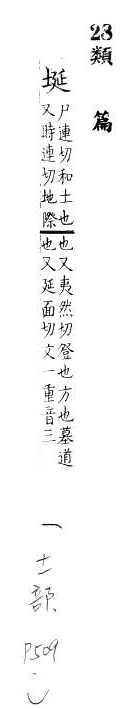 23
類篇
埏
尸連切和土也也又夷然切登也方也墓道
又時連切地際也又延面切文一重音三
一土部 P509